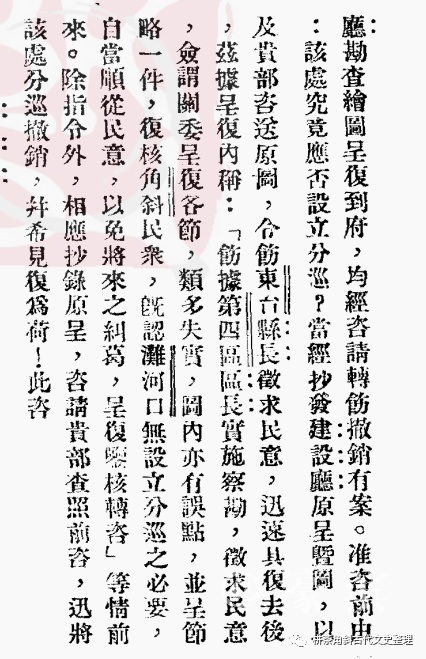 廳勘查繪圖呈復到府，均經咨請轉飭撤銷有案。准咨前由
：該處究竟應否設立分巡？當經抄發建設廳原呈暨圖，以
及貴部咨送原圖，令飭東台縣長徵求民意，迅速具復去後
，茲據呈復內稱：「飭據第四區區長實施察勘，徵求民意
，僉謂關委呈復各節，類多失實，圖內亦有誤點，並呈節
略一件，復核角斜民衆，既認灘河口無設立分巡之必要，
自當順從民意，以免將來之糾葛，呈復鑒核轉咨」等情前
來。除指令外，相應抄錄原呈，咨請貴部查照前咨，迅將
該處分巡撤銷，幷希見復爲荷！此咨
拼茶角斜古代文史整理